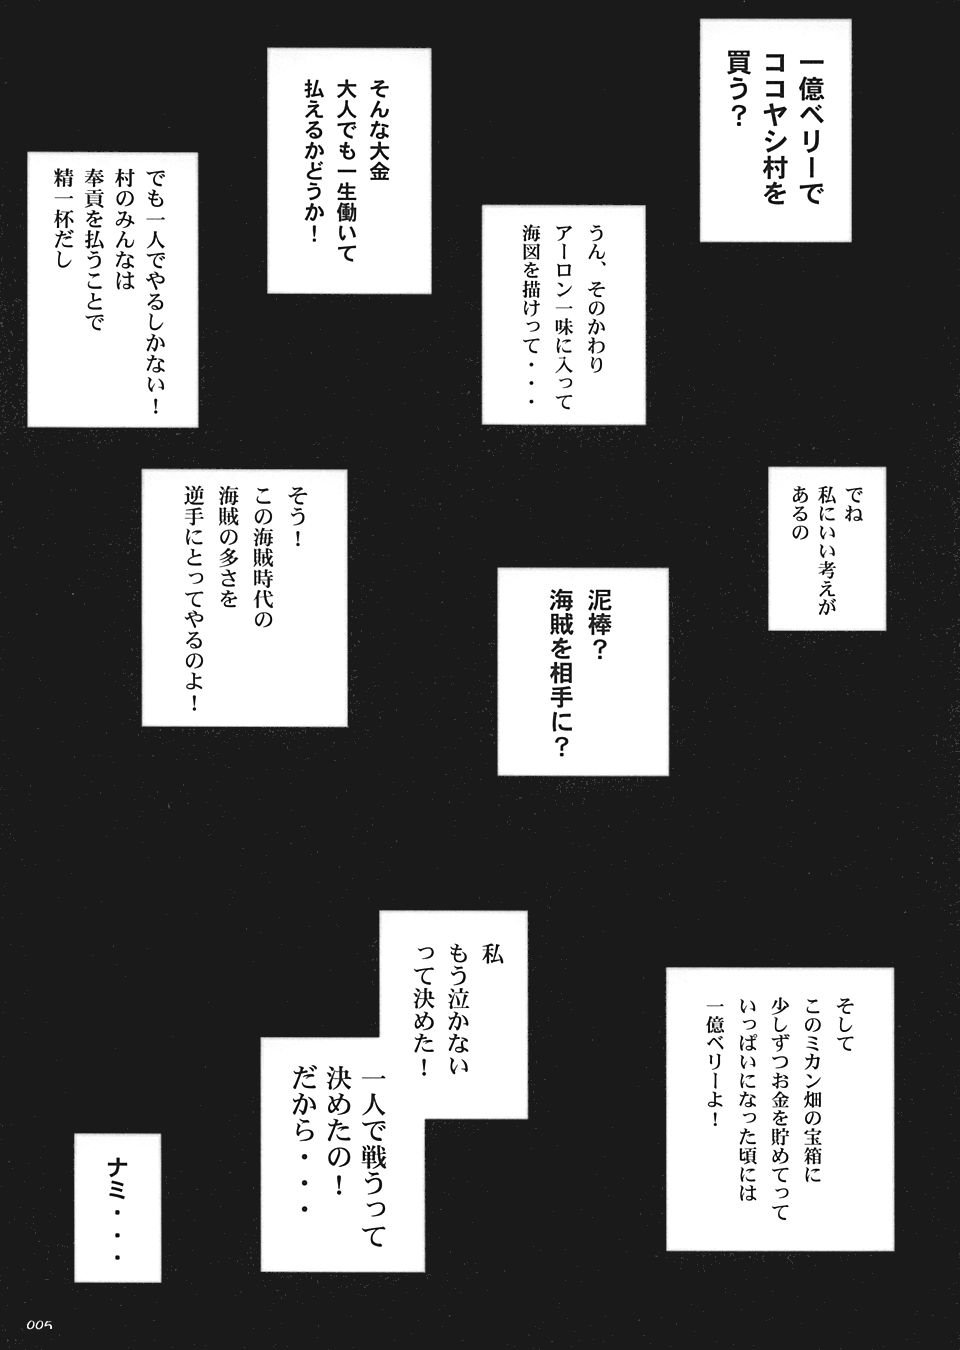 一億ベリーで
ココヤシ村を
買う？
うん、そのかわり
アーロン一味に入って
海図を描けって・・・
そんな大金
大人でも一生働いて
払えるかどうか！
でも一人でやるしかない！
村のみんなは
奉貢を払うことで
精一杯だし
でね
私にいい考えが
あるの
泥棒？
海賊を相手に？
そう！
この海賊時代の
海賊の多さを
逆手にとってやるのよ！
そして
このミカン畑の宝箱に
少しずつお金を貯めてって
いっぱいになった頃には
一億ベリーよ！
私
もう泣かない
って決めた！
一人で戦うって
決めたの！
だから・・・
ナミ・・・
005